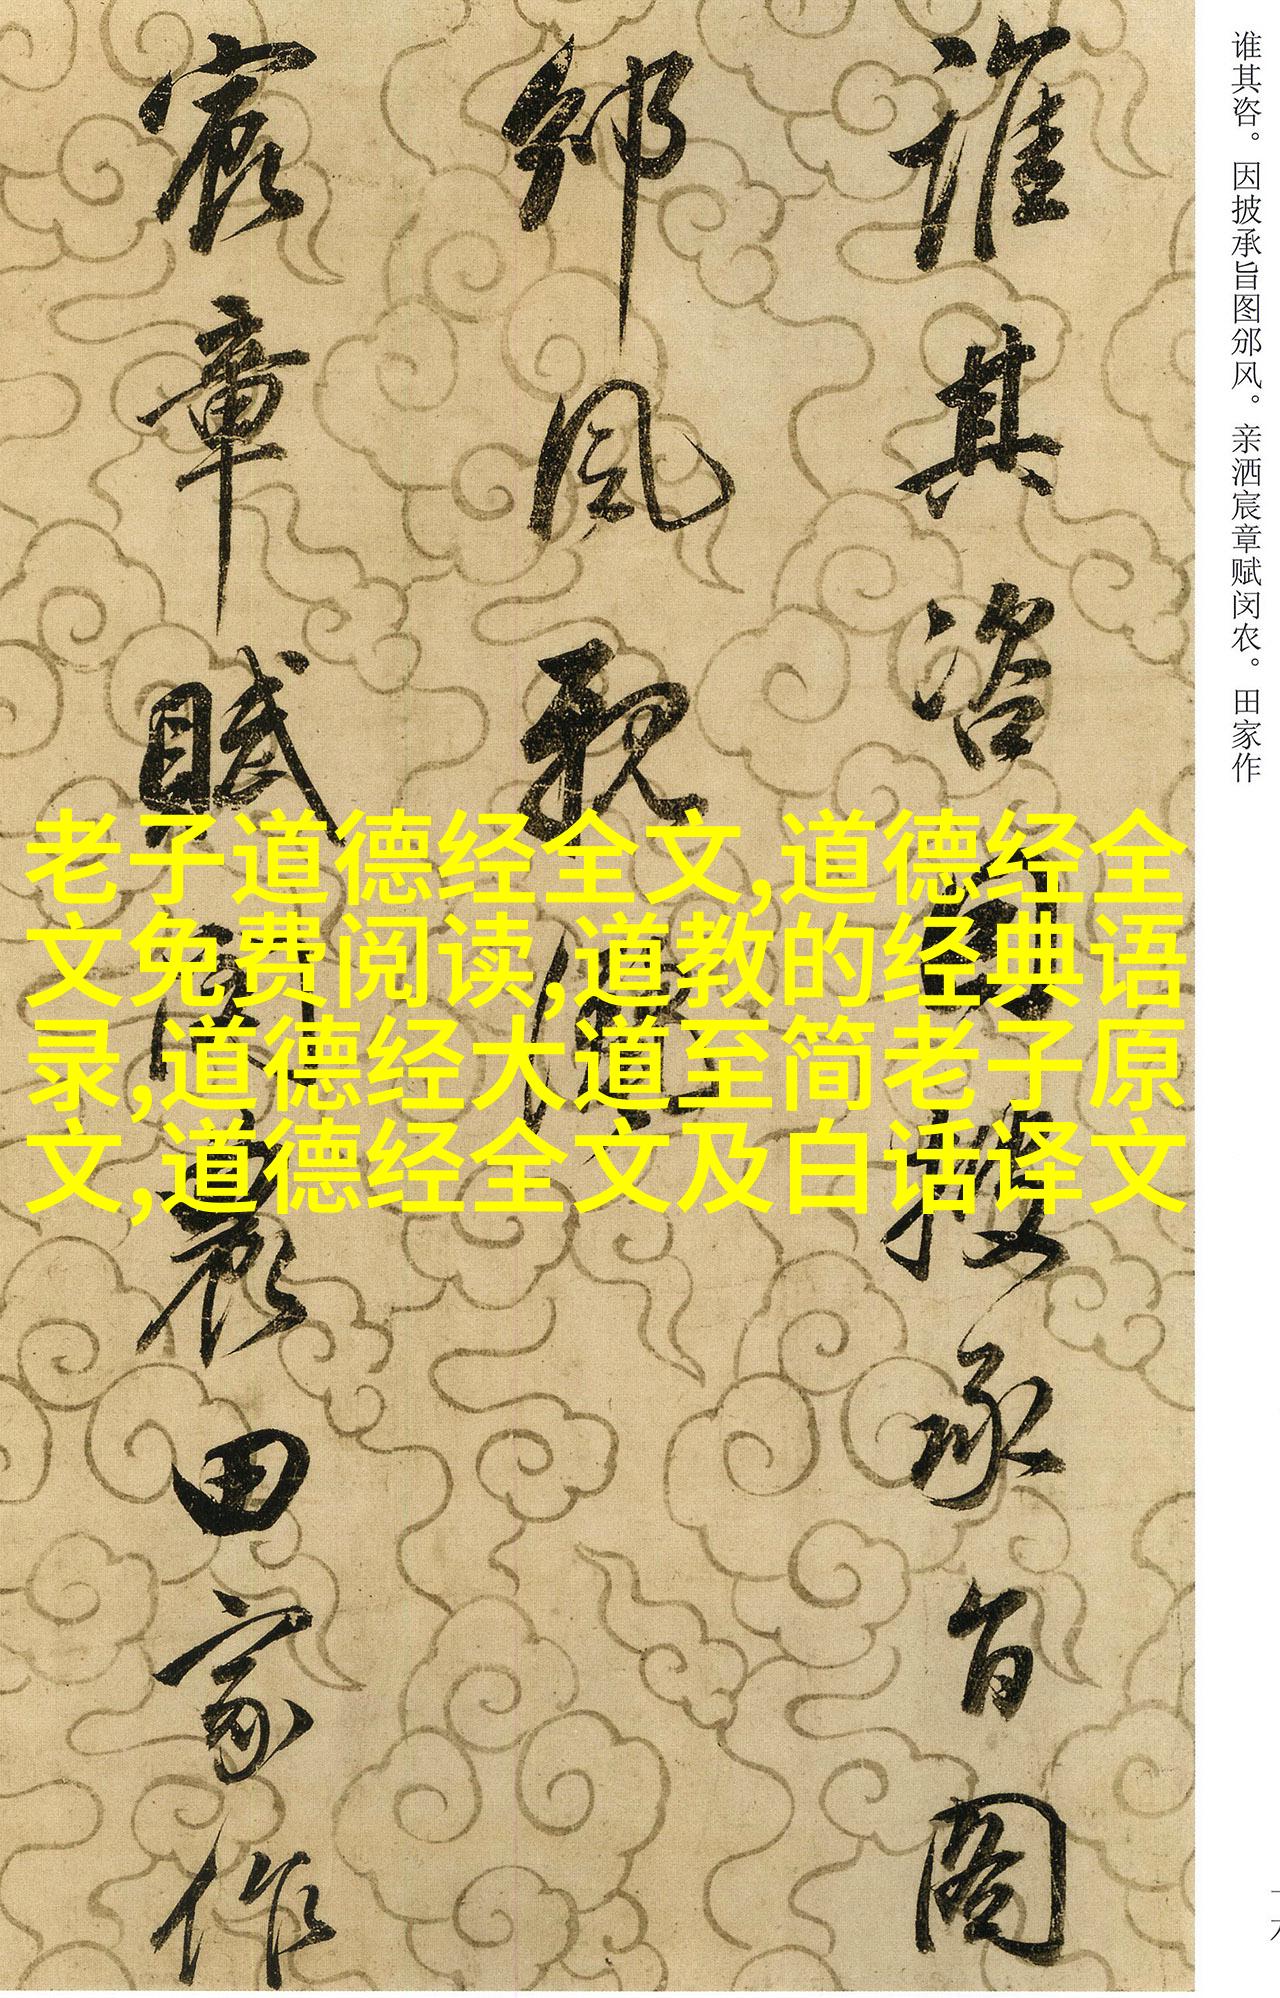 谁其咨。因披承旨图邠风。亲洒宸章赋闵农。田家作
誰其咨因披承旨圖
邠風親灑
宸章賦閔農田家作
老子道德经全文,道德经全
文免费阅读,道教的经典语
录,道德经大道至简老子原
文,道德经全文及白话译文